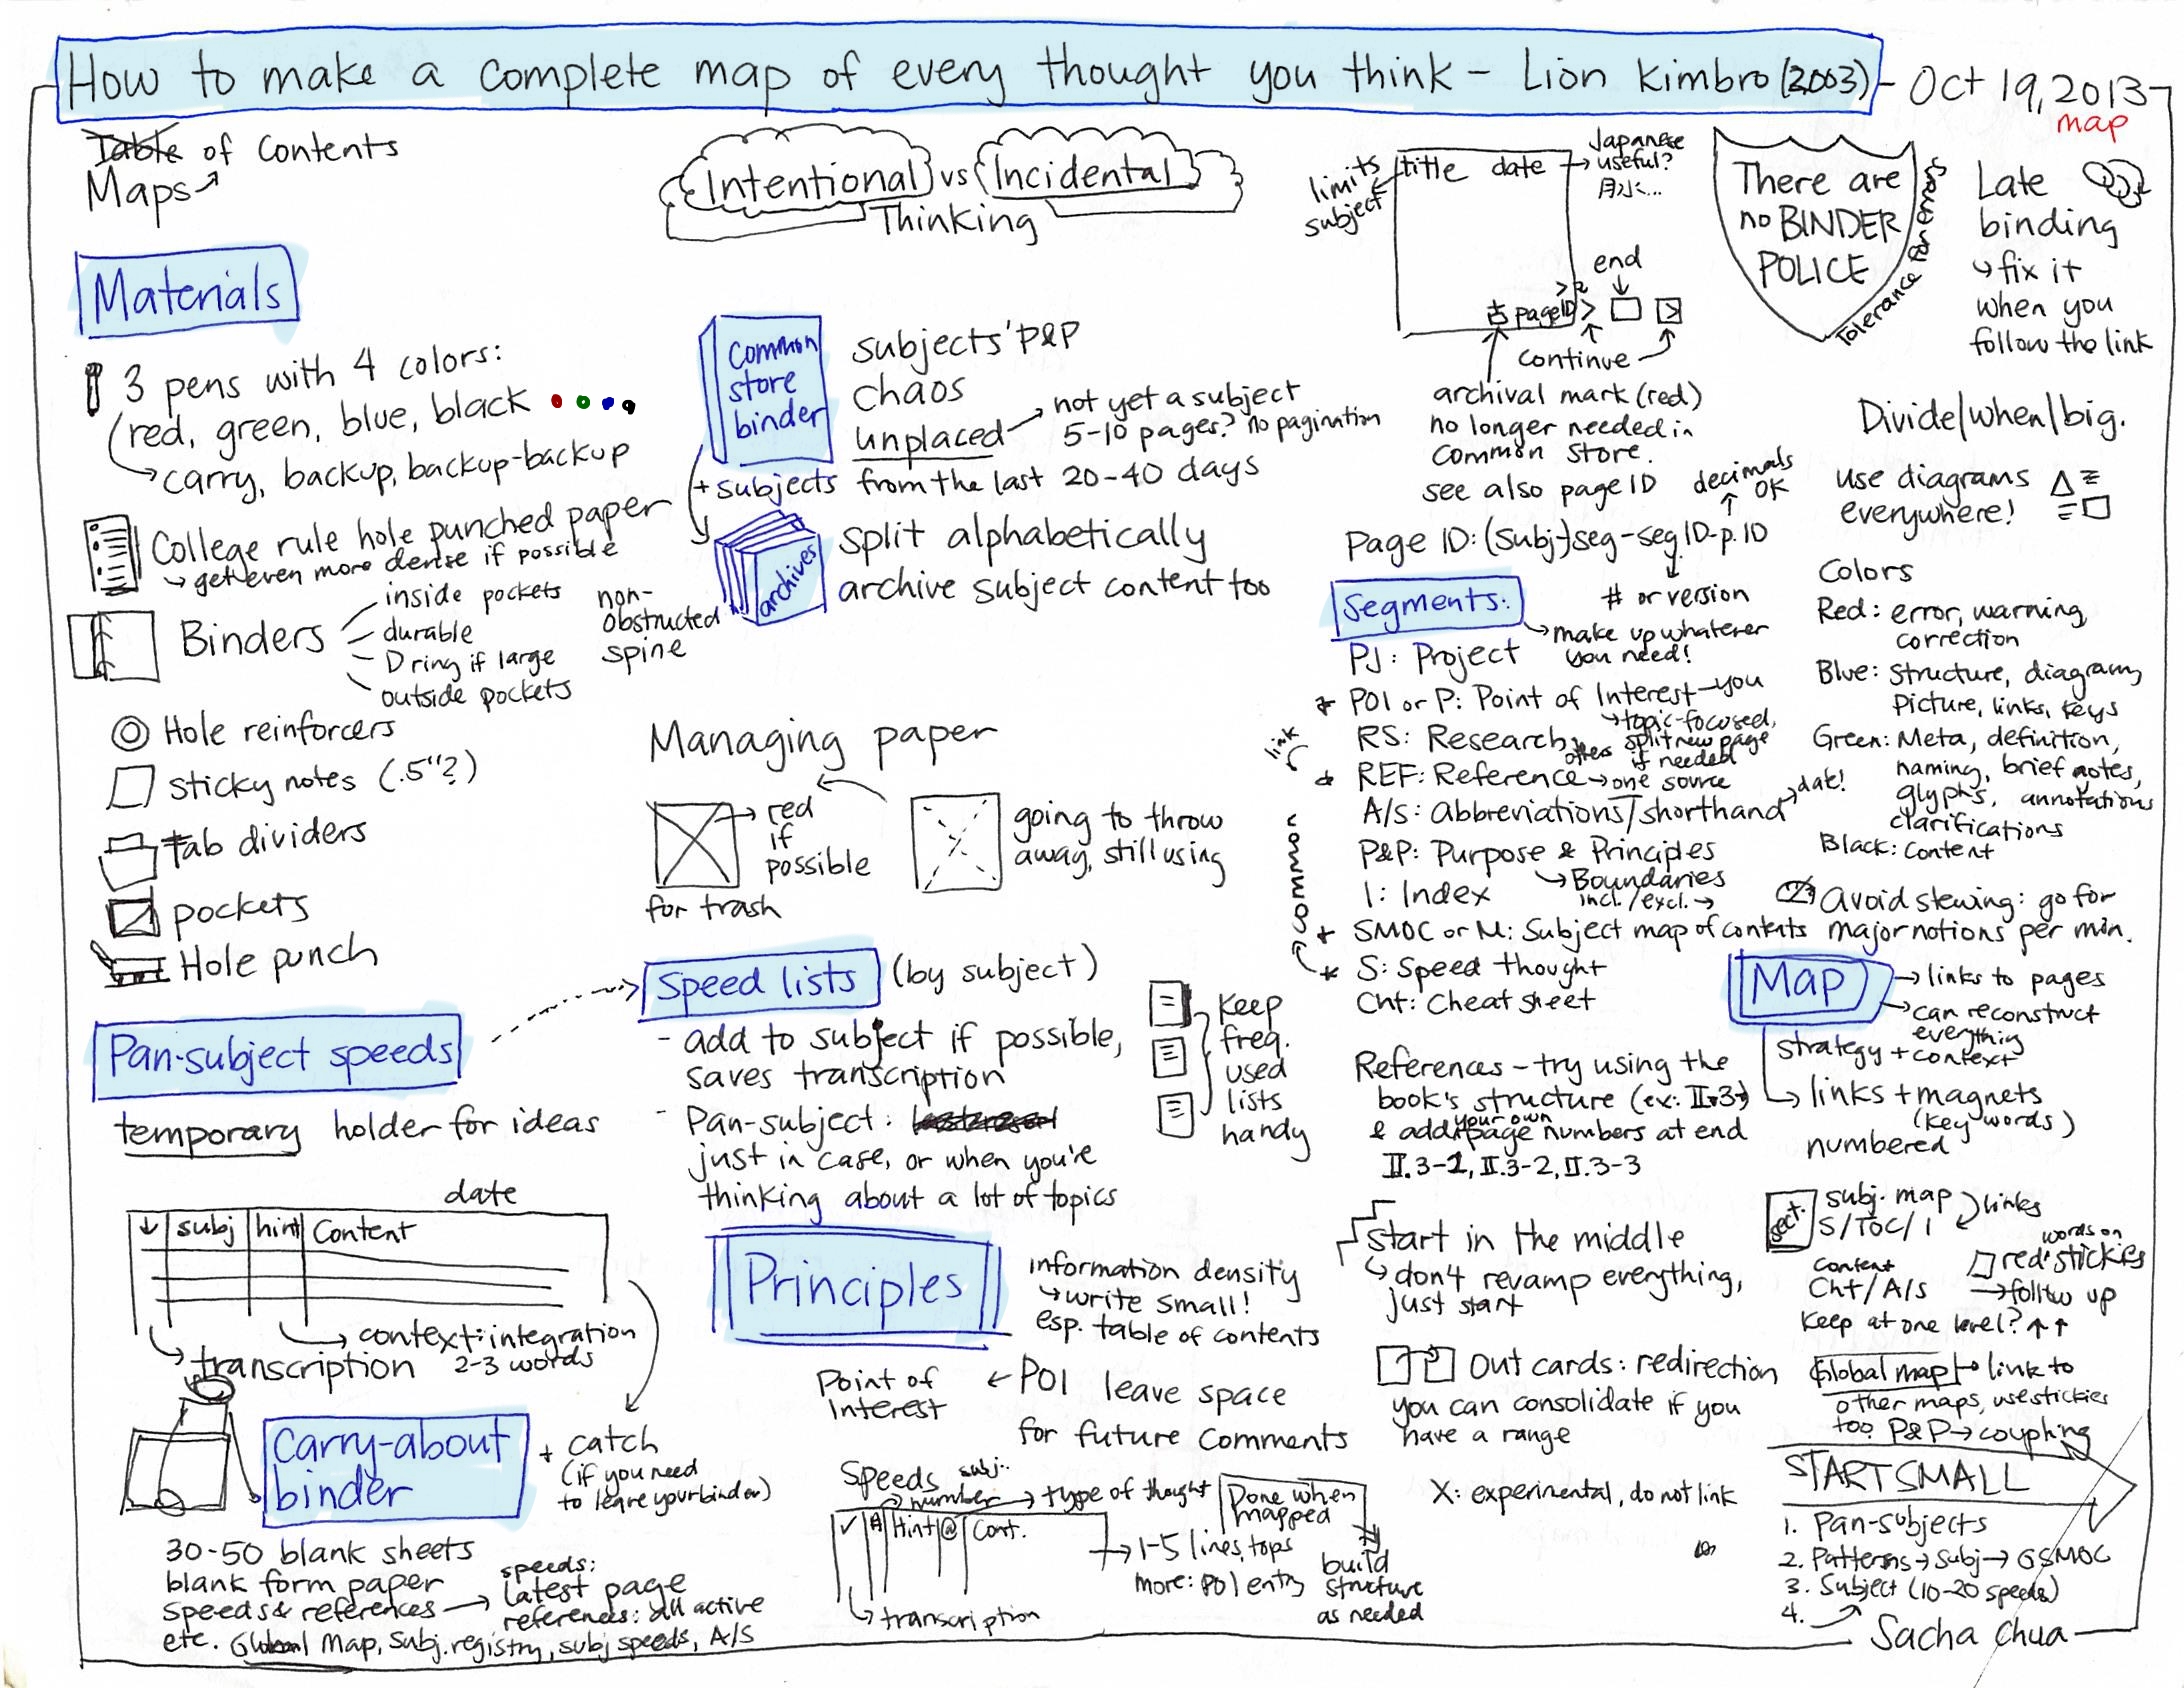 How to make a complete map of every thought you think - Lion Kimbro (2003) - Oct 19, 2013
map
Table of Contents
Maps
Materials
3 pens with 4 colors:
red, green, blue, black
carry, backup, backup-backup
College rule hole punched paper
get even more dense if possible
Binders
inside pockets
durable
D ring if large
outside pockets
non-
obstructed
spine
Hole reinforcers
sticky notes (.5"?)
tab dividers
pockets
Hole punch
Pan-subject speeds
temporary holder for ideas
date
subj hint Content
context: integration
2-3 words
transcription
Carry-about
binder
+ catch
(if you need
to leave your binder)
30-50 blank sheets
blank form paper
speeds & references
speeds:
latest page
references: all active
etc. Global Map, Subj. registry, subj speeds, A/S
Intentional vs Incidental
Thinking
Common
store
binder
subjects' P&P
chaos
unplaced
not yet a subject
5-10 pages? no pagination
+ subjects from the last 20-40 days
archives
split alphabetically
archive subject content too
Managing paper
red
if
possible
for trash
going to throw
away, still using
Speed lists (by subject)
- add to subject if possible,
saves transcription
- Pan-subject:
just in case, or when you're
thinking about a lot of topics
Keep
freq.
used
lists
handy
Principles
information density
write small!
esp. table of contents
Point of
Interest
POI leave space
for future comments
Speeds
subj.
number
type of thought
✓ # Hint @ Cont.
transcription
1-5 lines, tops
more: POI entry
Done when
mapped
build
structure
as needed
limits
subject
title date
Japanese
useful?
月水...
end
page ID
continue
archival mark (red)
no longer needed in
Common Store.
see also page ID
decimals
OK
Page ID: (Subj-)seg-seg ID-p. ID
# or version
Segments:
make up whatever
you need!
PJ: Project
* POI or P: Point of Interest-you
topic-focused,
split new page
if needed
RS: Research
others
link
* REF: Reference → one source
A/S: Abbreviations/shorthand
date!
P&P: Purpose & Principles
Boundaries
incl./excl. →
I: Index
common
* SMOC or M: Subject map of contents
* S: Speed thought
Cht: Cheat sheet
References - try using the
book's structure (ex: II.3)
& add your own page numbers at end
II.3-1, II.3-2, II.3-3
start in the middle
don't revamp everything,
just start
Out cards: redirection
you can consolidate if you
have a range
X: experimental, do not link
There are
no BINDER
POLICE
Tolerance for Errors
Late
binding
fix it
when you
follow the link
Divide/when/big.
use diagrams
everywhere!
Colors
Red: error, warning,
correction
Blue: Structure, diagram,
Picture, links, keys
Green: Meta, definition,
naming, brief notes,
glyphs, annotations
clarifications
Black: content
Avoid stewing: go for
major notions per min.
Map
links to pages
can reconstruct
everything
strategy + context
links + magnets
(key words)
numbered
sect.
subj. map
S/TOC/I
links
content
Cht/A/S
words on
red stickies
→ follow up
Keep at one level? ↑↑
Global map → link to
other maps, use stickies
too. P&P → coupling
START SMALL
1. Pan-subjects
2. Patterns → Subj → GSMOC
3. Subject (10-20 speeds)
4.
Sacha Chua